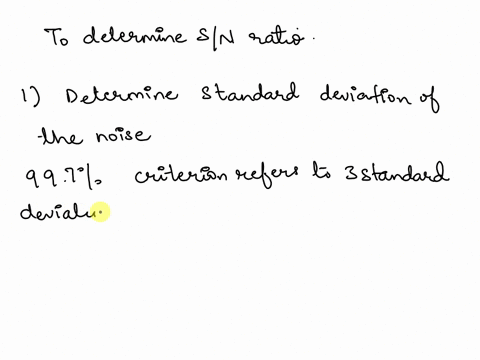 To determine S/N ratio.
1) Determine standard deviation of
the noise
99.7% criterion refers to 3 standard
deviati